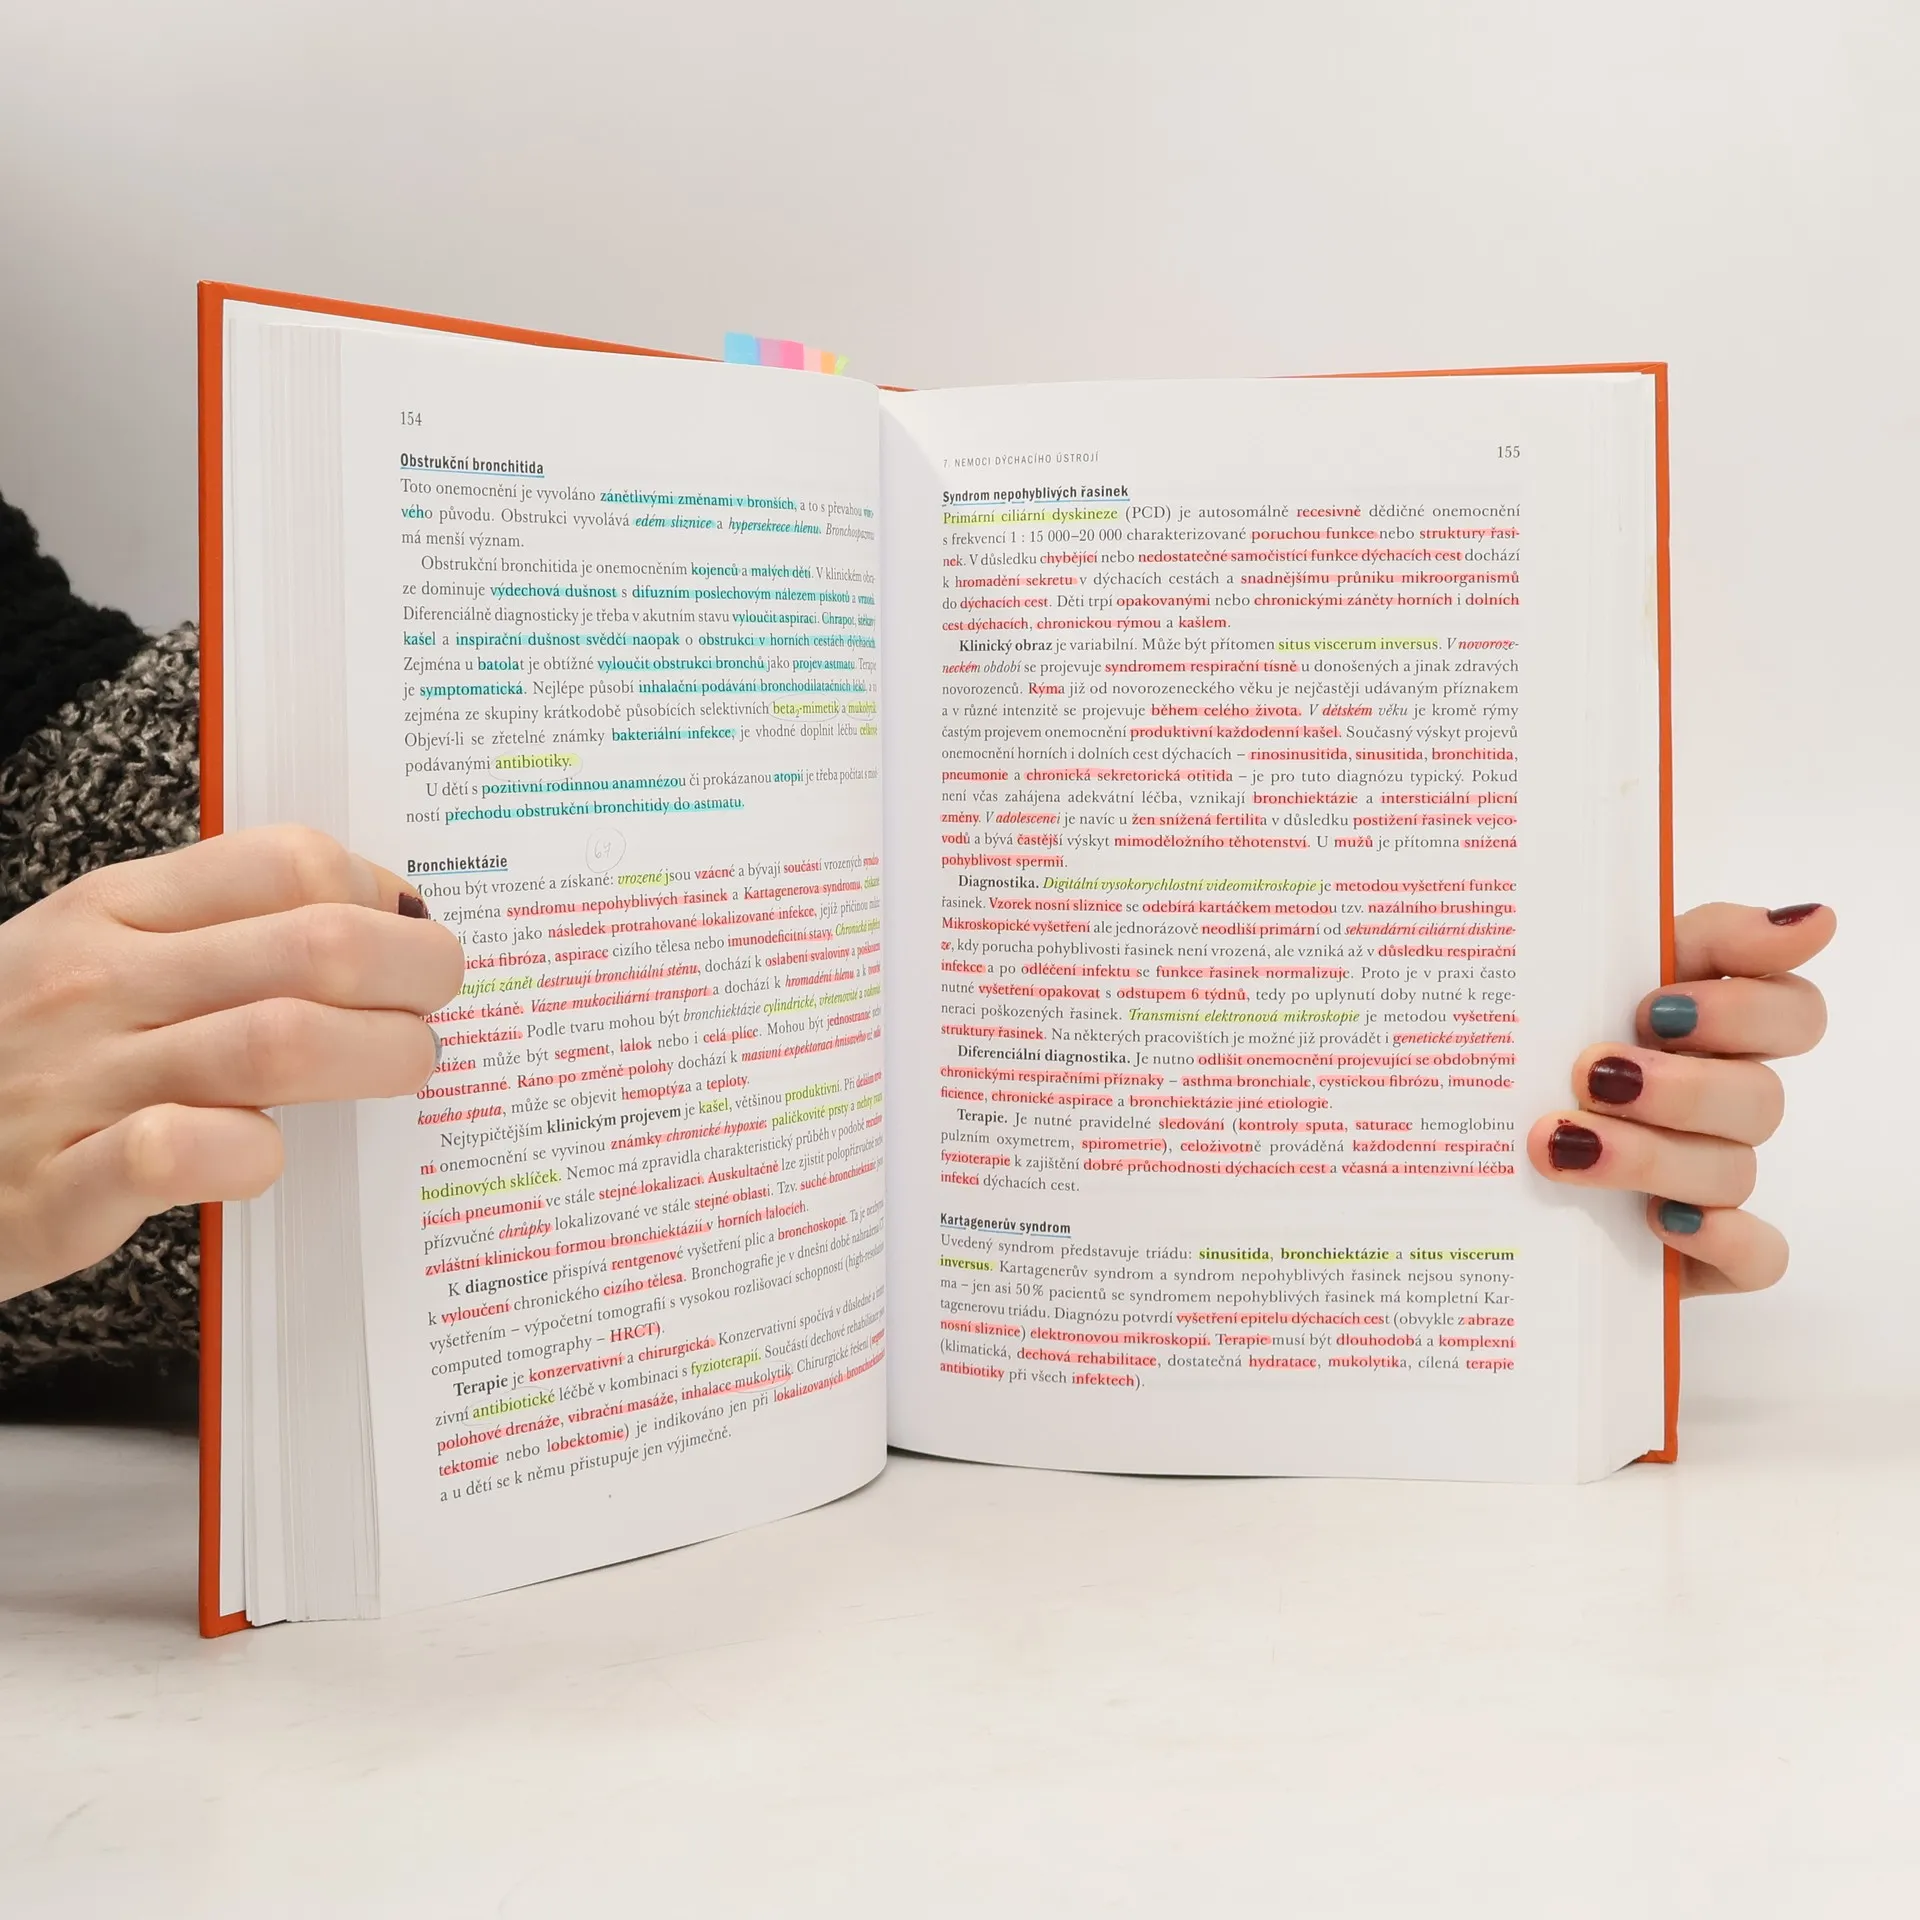 154
Obstrukční bronchitida
Toto onemocnění je vyvoláno zánětlivými změnami v bronších, a to s převahou
vého původu. Obstrukci vyvolává edém sliznice a hypersekrece hlenu. Bronchospazmus
má menší význam.
Obstrukční bronchitida je onemocněním kojenců a malých dětí. V klinickém
ze dominuje výdechová dušnost s difuzním poslechovým nálezem pískotů a vrzotů.
Diferenciálně diagnosticky je třeba v akutním stavu vyloučit aspiraci. Chrapot,
kašel a inspirační dušnost svědčí naopak o obstrukci v horních cestách dýchacích.
Zejména u batolat je obtížné vyloučit obstrukci bronchů jako projev astmatu. Terapie
je symptomatická. Nejlépe působí inhalační podávání bronchodilatačních léků, a to
zejména ze skupiny krátkodobě působících selektivních beta₂-mimetik a mukolytik.
Objeví-li se zřetelné známky bakteriální infekce, je vhodné doplnit léčbu celkově
podávanými antibiotiky.
U dětí s pozitivní rodinnou anamnézou či prokázanou atopií je třeba počítat s
ností přechodu obstrukční bronchitidy do astmatu.
67
Bronchiektázie
Mohou být vrozené a získané: vrozené jsou vzácné a bývají součástí vrozených
zejména syndromu nepohyblivých řasinek a Kartagenerova syndromu, získané
často jako následek protrahované lokalizované infekce, jejíž příčinou může
ická fibróza, aspirace cizího tělesa nebo imunodeficitní stavy. Chronická infekce
tující zánět destruují bronchiální stěnu, dochází k oslabení svaloviny a
astické tkáně. Vázne mukociliární transport a dochází k hromadění hlenu a k
nchiektázií. Podle tvaru mohou být bronchiektázie cylindrické, vřetenovité a
stižen může být segment, lalok nebo i celá plíce. Mohou být jednostranné
oboustranné. Ráno po změně polohy dochází k masivní expektoraci hnisavého
kového sputa, může se objevit hemoptýza a teploty.
Nejtypičtějším klinickým projevem je kašel, většinou produktivní. Při delším
ní onemocnění se vyvinou známky chronické hypoxie: paličkovité prsty a nehty
hodinových sklíček. Nemoc má zpravidla charakteristický průběh v podobě
jících pneumonií ve stále stejné lokalizaci. Auskultačně lze zjistit polopřízvučné
přízvučné chrůpky lokalizované ve stále stejné oblasti. Tzv. suché bronchiektázie jsou
zvláštní klinickou formou bronchiektázií v horních lalocích.
K diagnostice přispívá rentgenové vyšetření plic a bronchoskopie. Ta je nezbytná
k vyloučení chronického cizího tělesa. Bronchografie je v dnešní době nahrazena
vyšetřením – výpočetní tomografií s vysokou rozlišovací schopností (high-resolution
computed tomography – HRCT).
Terapie je konzervativní a chirurgická. Konzervativní spočívá v důsledné a
zivní antibiotické léčbě v kombinaci s fyzioterapií. Součástí dechové rehabilitace
polohové drenáže, vibrační masáže, inhalace mukolytik. Chirurgické řešení
tektomie nebo lobektomie) je indikováno jen při lokalizovaných bronchiektáziích
a u dětí se k němu přistupuje jen výjimečně.
7. NEMOCI DÝCHACÍHO ÚSTROJÍ 155
Syndrom nepohyblivých řasinek
Primární ciliární dyskineze (PCD) je autosomálně recesivně dědičné onemocnění
s frekvencí 1 : 15 000–20 000 charakterizované poruchou funkce nebo struktury řasi-
nek. V důsledku chybějící nebo nedostatečné samočistící funkce dýchacích cest dochází
k hromadění sekretu v dýchacích cestách a snadnějšímu průniku mikroorganismů
do dýchacích cest. Děti trpí opakovanými nebo chronickými záněty horních i dolních
cest dýchacích, chronickou rýmou a kašlem.
Klinický obraz je variabilní. Může být přítomen situs viscerum inversus. V novoroze-
neckém období se projevuje syndromem respirační tísně u donošených a jinak zdravých
novorozenců. Rýma již od novorozeneckého věku je nejčastěji udávaným příznakem
a v různé intenzitě se projevuje během celého života. V dětském věku je kromě rýmy
častým projevem onemocnění produktivní každodenní kašel. Současný výskyt projevů
onemocnění horních i dolních cest dýchacích – rinosinusitida, sinusitida, bronchitida,
pneumonie a chronická sekretorická otitida – je pro tuto diagnózu typický. Pokud
není včas zahájena adekvátní léčba, vznikají bronchiektázie a intersticiální plicní
změny. V adolescenci je navíc u žen snížená fertilita v důsledku postižení řasinek vejco-
vodů a bývá častější výskyt mimoděložního těhotenství. U mužů je přítomna snížená
pohyblivost spermií.
Diagnostika. Digitální vysokorychlostní videomikroskopie je metodou vyšetření funkce
řasinek. Vzorek nosní sliznice se odebírá kartáčkem metodou tzv. nazálního brushingu.
Mikroskopické vyšetření ale jednorázově neodliší primární od sekundární ciliární diskine-
ze, kdy porucha pohyblivosti řasinek není vrozená, ale vzniká až v důsledku respirační
infekce a po odléčení infektu se funkce řasinek normalizuje. Proto je v praxi často
nutné vyšetření opakovat s odstupem 6 týdnů, tedy po uplynutí doby nutné k rege-
neraci poškozených řasinek. Transmisní elektronová mikroskopie je metodou vyšetření
struktury řasinek. Na některých pracovištích je možné již provádět i genetické vyšetření.
Diferenciální diagnostika. Je nutno odlišit onemocnění projevující se obdobnými
chronickými respiračními příznaky – asthma bronchiale, cystickou fibrózu, imunode-
ficience, chronické aspirace a bronchiektázie jiné etiologie.
Terapie. Je nutné pravidelné sledování (kontroly sputa, saturace hemoglobinu
pulzním oxymetrem, spirometrie), celoživotně prováděná každodenní respirační
fyzioterapie k zajištění dobré průchodnosti dýchacích cest a včasná a intenzivní léčba
infekcí dýchacích cest.
Kartagenerův syndrom
Uvedený syndrom představuje triádu: sinusitida, bronchiektázie a situs viscerum
inversus. Kartagenerův syndrom a syndrom nepohyblivých řasinek nejsou synony-
ma – jen asi 50 % pacientů se syndromem nepohyblivých řasinek má kompletní Kar-
tagenerovu triádu. Diagnózu potvrdí vyšetření epitelu dýchacích cest (obvykle z abraze
nosní sliznice) elektronovou mikroskopií. Terapie musí být dlouhodobá a komplexní
(klimatická, dechová rehabilitace, dostatečná hydratace, mukolytika, cílená terapie
antibiotiky při všech infektech).